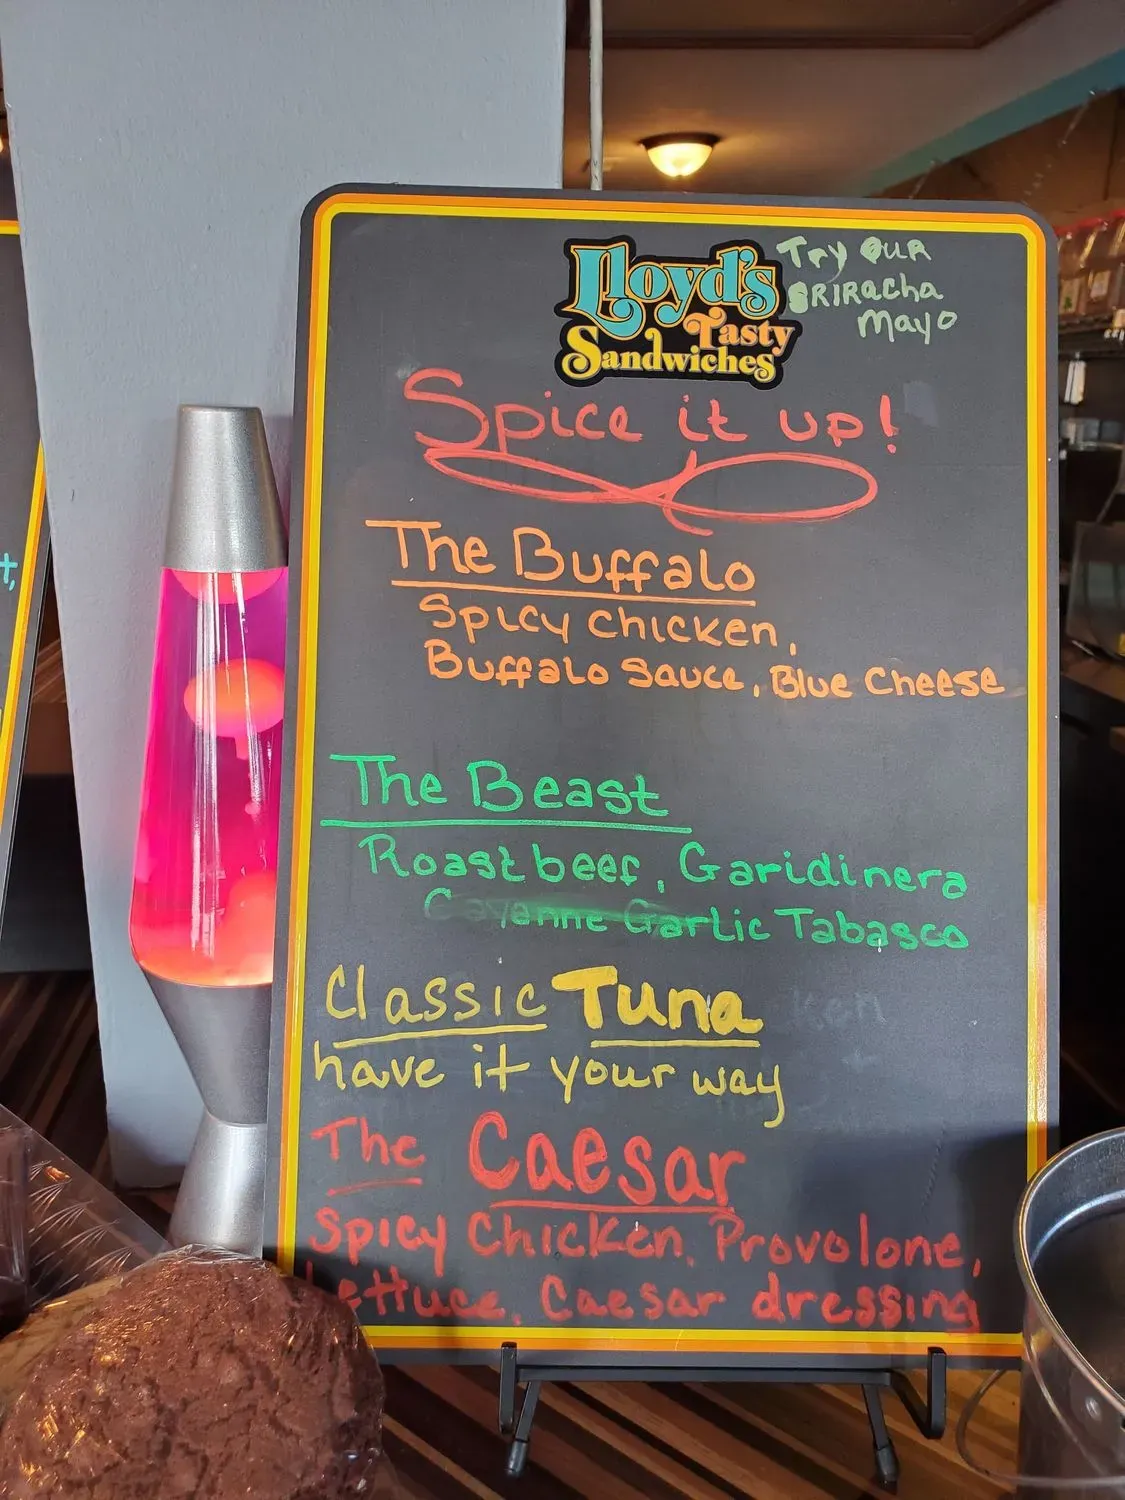 Lloyd's
Tasty
Sandwiches
Try Our
SRIRacha
Mayo
Spice it up!
The Buffalo
Spicy Chicken,
Buffalo Sauce, Blue Cheese
The Beast
Roast beef, Garidinera
Cayanne Garlic Tabasco
Classic Tuna
have it your way
The Caesar
Spicy Chicken, Provolone,
Lettuce, Caesar dressing